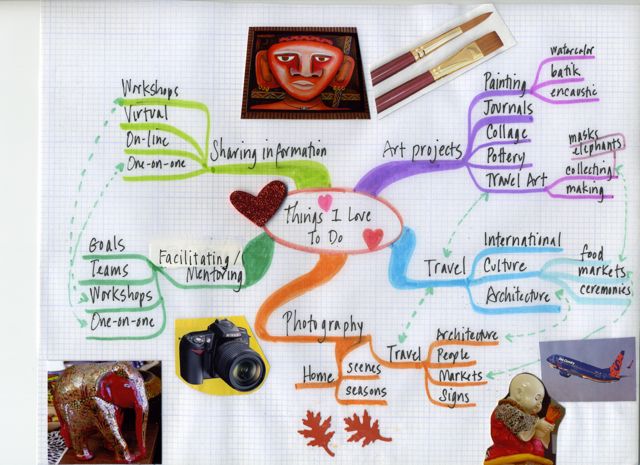 Things I Love
To Do
Sharing information
Workshops
Virtual
On-line
One-on-one
Art projects
Painting
watercolor
batik
encaustic
Journals
Collage
Pottery
Travel Art
masks
elephants
collecting
making
Travel
International
Culture
food
markets
ceremonies
Architecture
Photography
Travel
Architecture
People
Markets
Signs
Home
scenes
seasons
Facilitating/
Mentoring
Goals
Teams
Workshops
One-on-one
Nikon